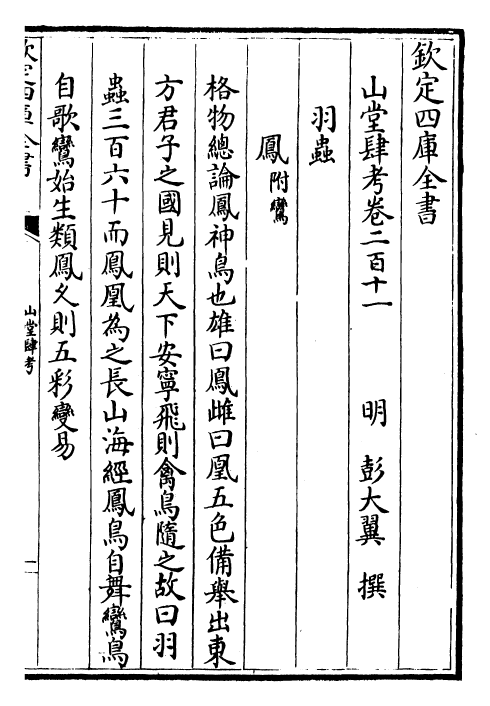 欽定四庫全書
山堂肆考卷二百十一　明　彭大翼　撰
羽蟲
鳳附鸞
格物總論鳳神鳥也雄曰鳳雌曰凰五色備舉出東
方君子之國見則天下安寧飛則禽鳥隨之故曰羽
蟲三百六十而鳳凰為之長山海經鳳鳥自舞鸞鳥
自歌鸞始生類鳳久則五彩變易
欽定四庫全書
山堂肆考
一